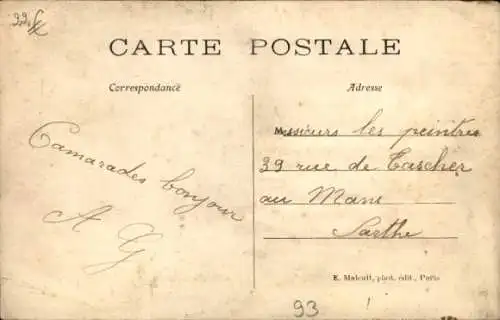 CARTE POSTALE
Correspondance
Adresse
Camarades bonjour
A G
Messieurs les peintres
39 rue de Tascher
au Mans
Sarthe
E. Malcuit, phot. édit., Paris
93